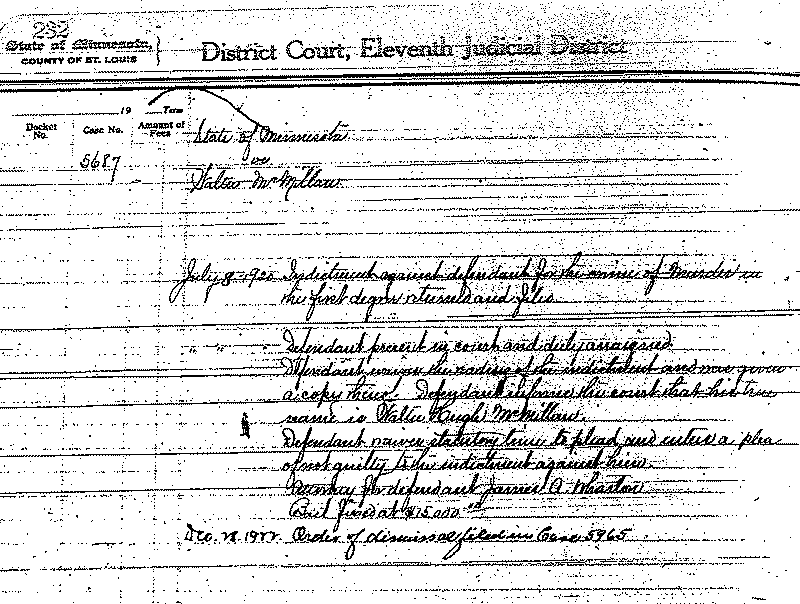 232
State of Minnesota,
COUNTY OF ST. LOUIS
District Court, Eleventh Judicial District
19 Term
Docket No. Case No. Amount of Fees
5687
State of Minnesota
vs.
Walter McMillan
July 8-1920 Indictment against defendant for the crime of Murder in
the first degree returned and filed.
" " - Defendant present in court and duly arraigned.
Defendant waives the reading of the indictment and was given
a copy thereof. Defendant informs the court that his true
name is Walter Hugh McMillan.
Defendant waives statutory time to plead and enters a plea
of not guilty to the indictment against him.
Attorney for defendant James A. Wharton
Bail fixed at $15,000
Dec. 28, 1922 Order of dismissal filed in Case 5965